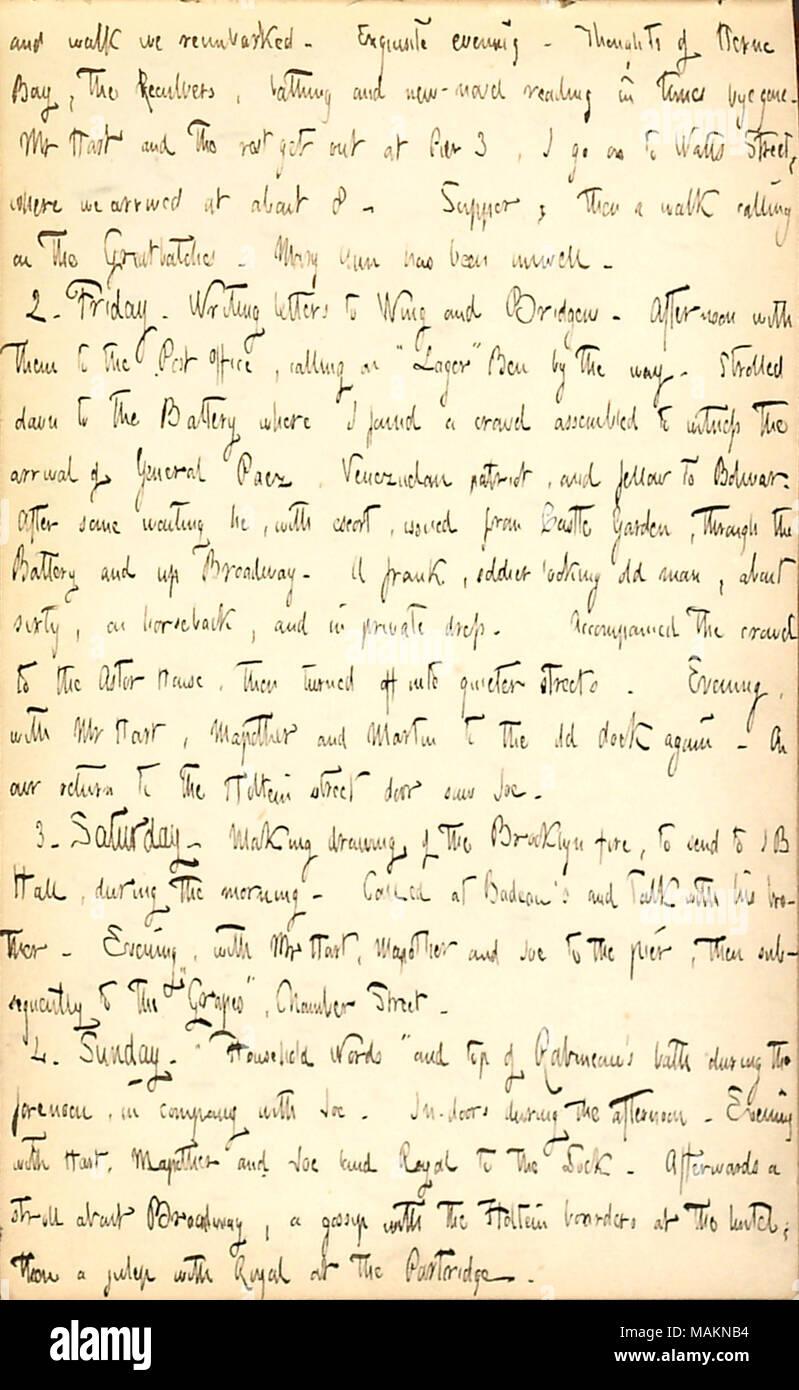 and walk we reembarked. Exquisite evening. Thoughts of Herne
Bay, the Reculvers, bathing and new-novel reading in times bye gone.
Mr Hart and the rest get out at Pier 3, I go on to Watts Street,
where we arrived at about 8. Supper, then a walk calling
on the Greatbatches. Mary Ann has been unwell.
2. Friday. Writing letters to Wing and Bridgens. Afternoon with
them to the Post Office, calling on "Lager" Beu by the way. Strolled
down to the Battery where I found a crowd assembled to witness the
arrival of General Paez, Venezuelan patriot, and fellow to Bolivar.
After some waiting he, with escort, issued from Castle Garden, through the
Battery and up Broadway. A frank, soldier looking old man, about
sixty, on horseback, and in private dress. Accompanied the crowd
to the Astor House, then turned off into quieter streets. Evening,
with Mr Hart, Mapother and Martin to the old dock again. On
our return to the Holtein street door saw Joe.
3. Saturday. Making drawing of the Brooklyn fire, to send to J B
Hall, during the morning. Called at Badeau's and talk with his bro-
ther. Evening, with Mr Hart, Mapother and Joe to the pier, then sub-
sequently to the "Grapes", Chamber Street.
4. Sunday. "Household Words" and top of Rabineau's bath during the
forenoon, in company with Joe. In-doors during the afternoon. Evening
with Hart, Mapother and Joe and Royal to the Dock. Afterwards a
stroll about Broadway, a gossip with the Holtein boarders at the hotel;
then a julep with Royal at the Partridge.
alamy
Image ID: MAKNB4
www.alamy.com